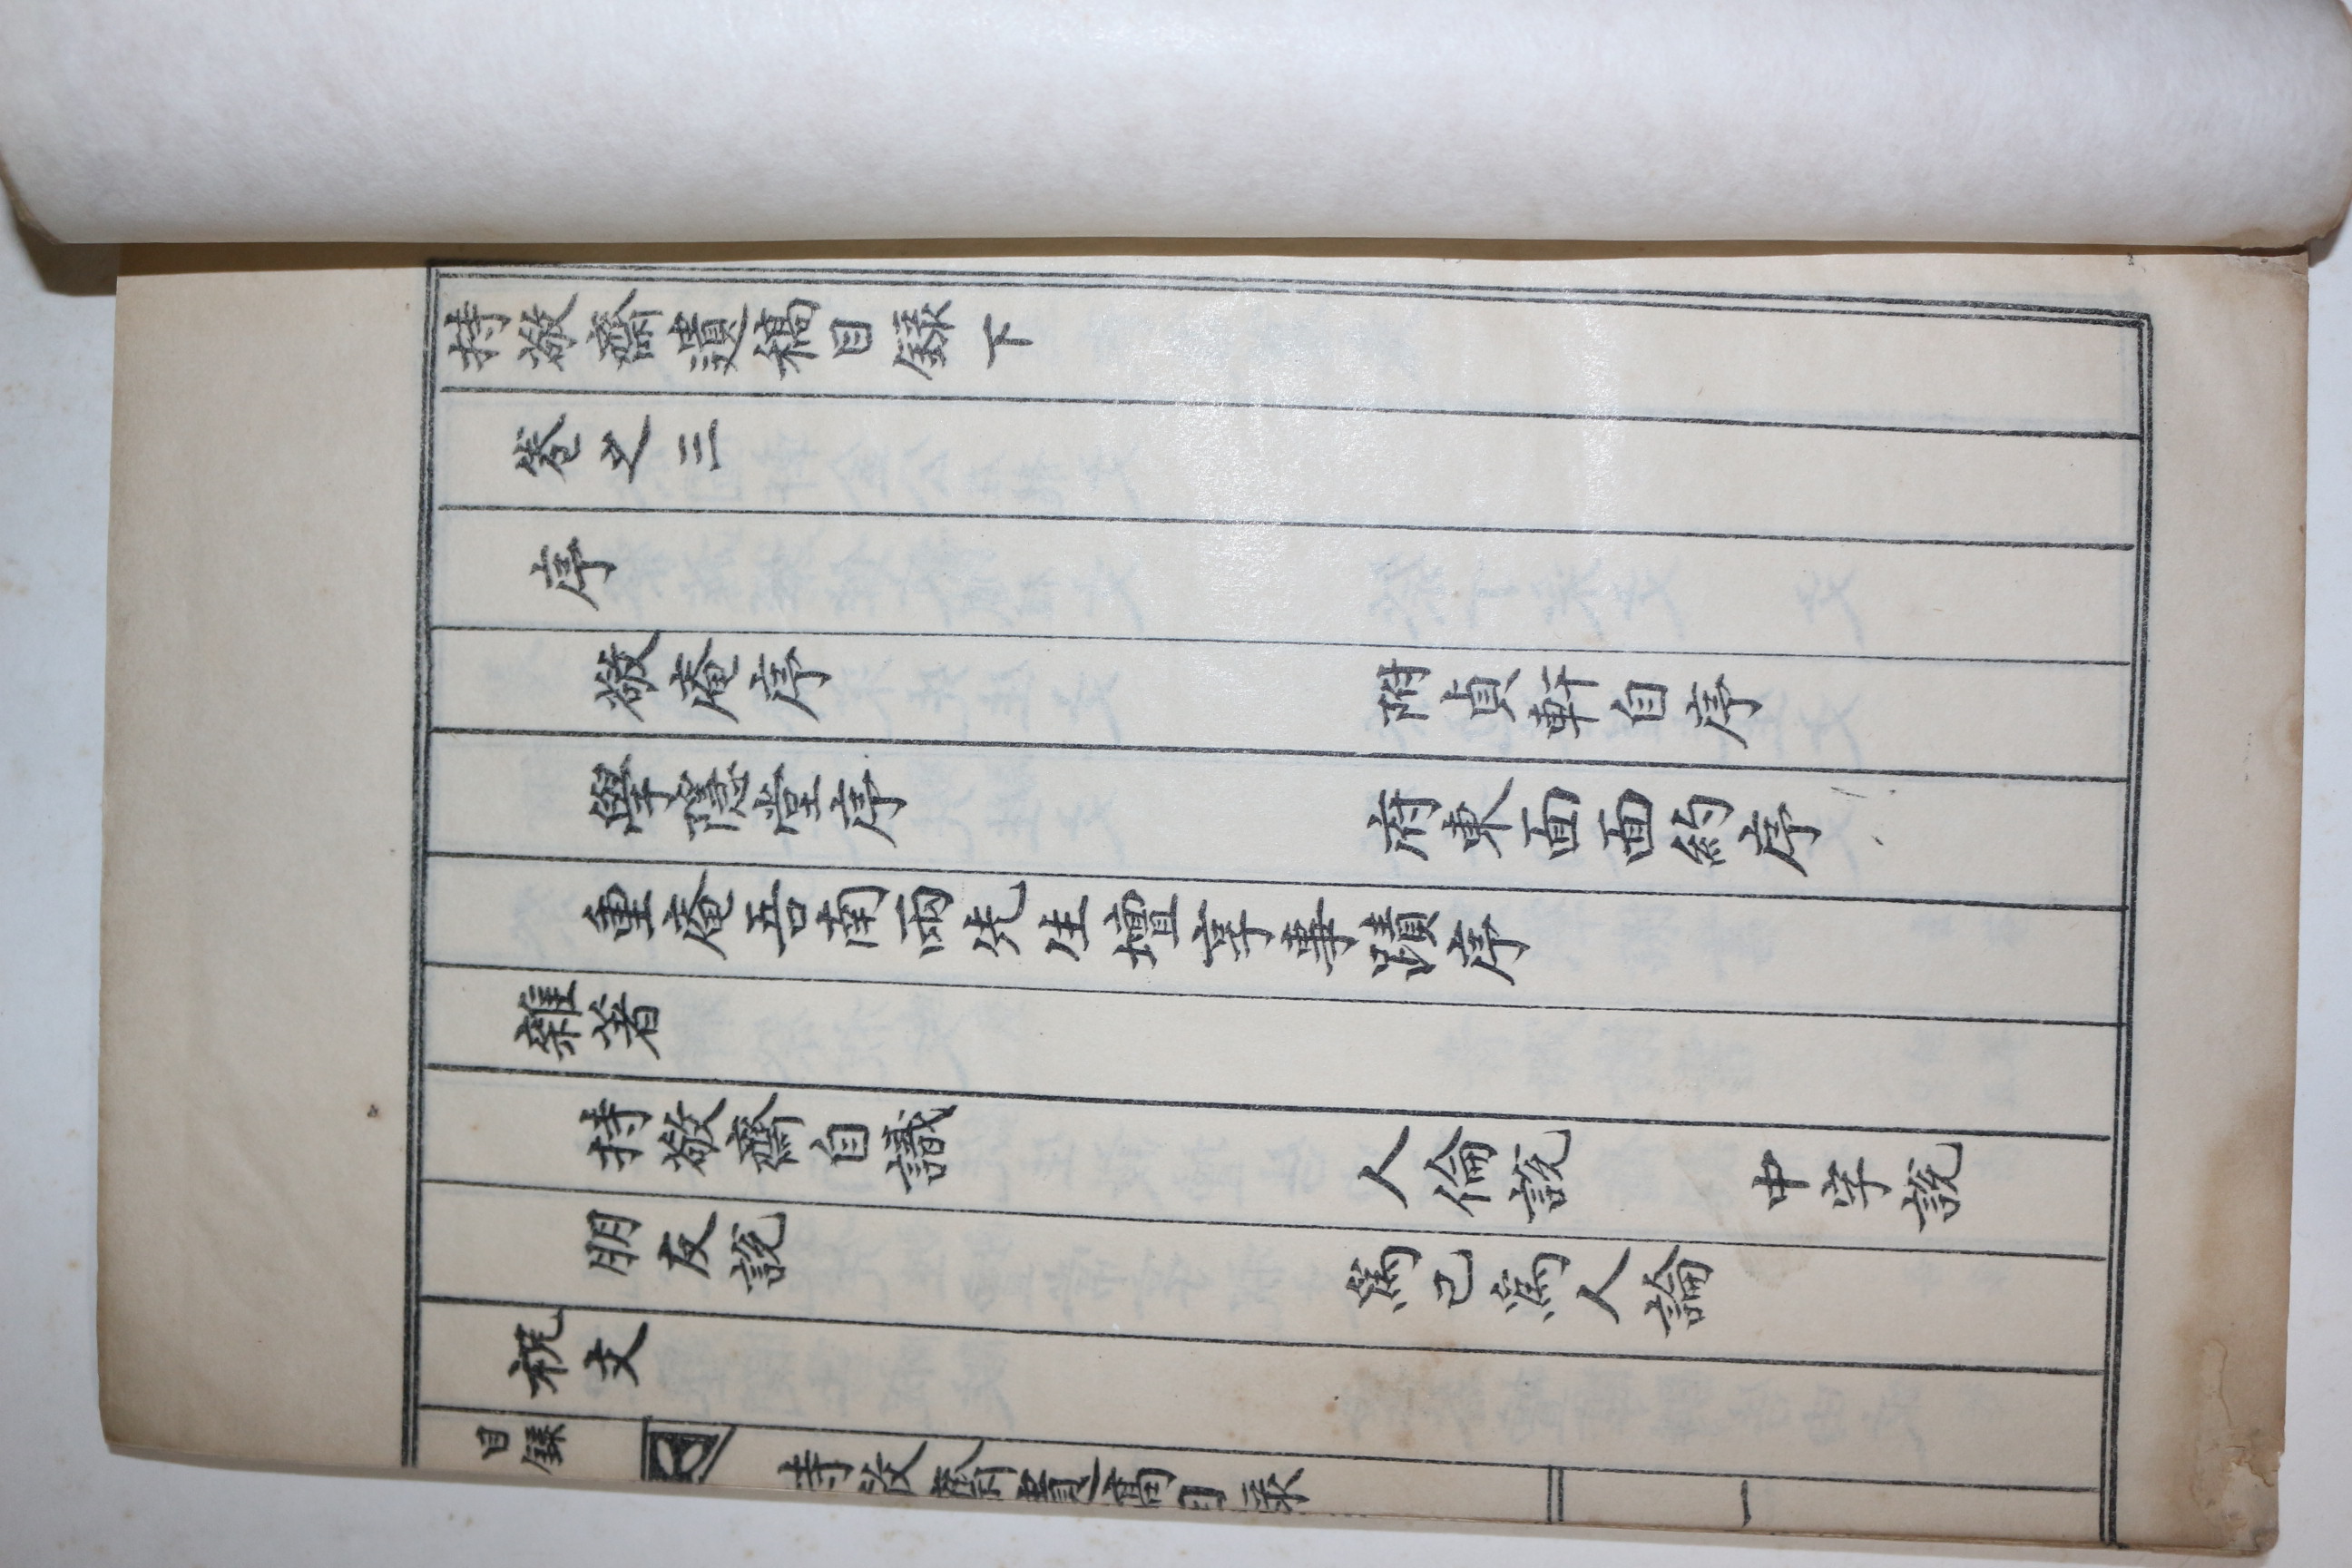 持敬齋遺稿目錄下
卷之三
序
敬庵序 附貞軒自序
學隱堂序 府東面面約序
重庵吾南兩先生壇享事蹟序
雜著
持敬齋自識 人倫說 中字說
朋友說 爲己爲人論
祝文
目錄 持敬齋遺稿目錄 一